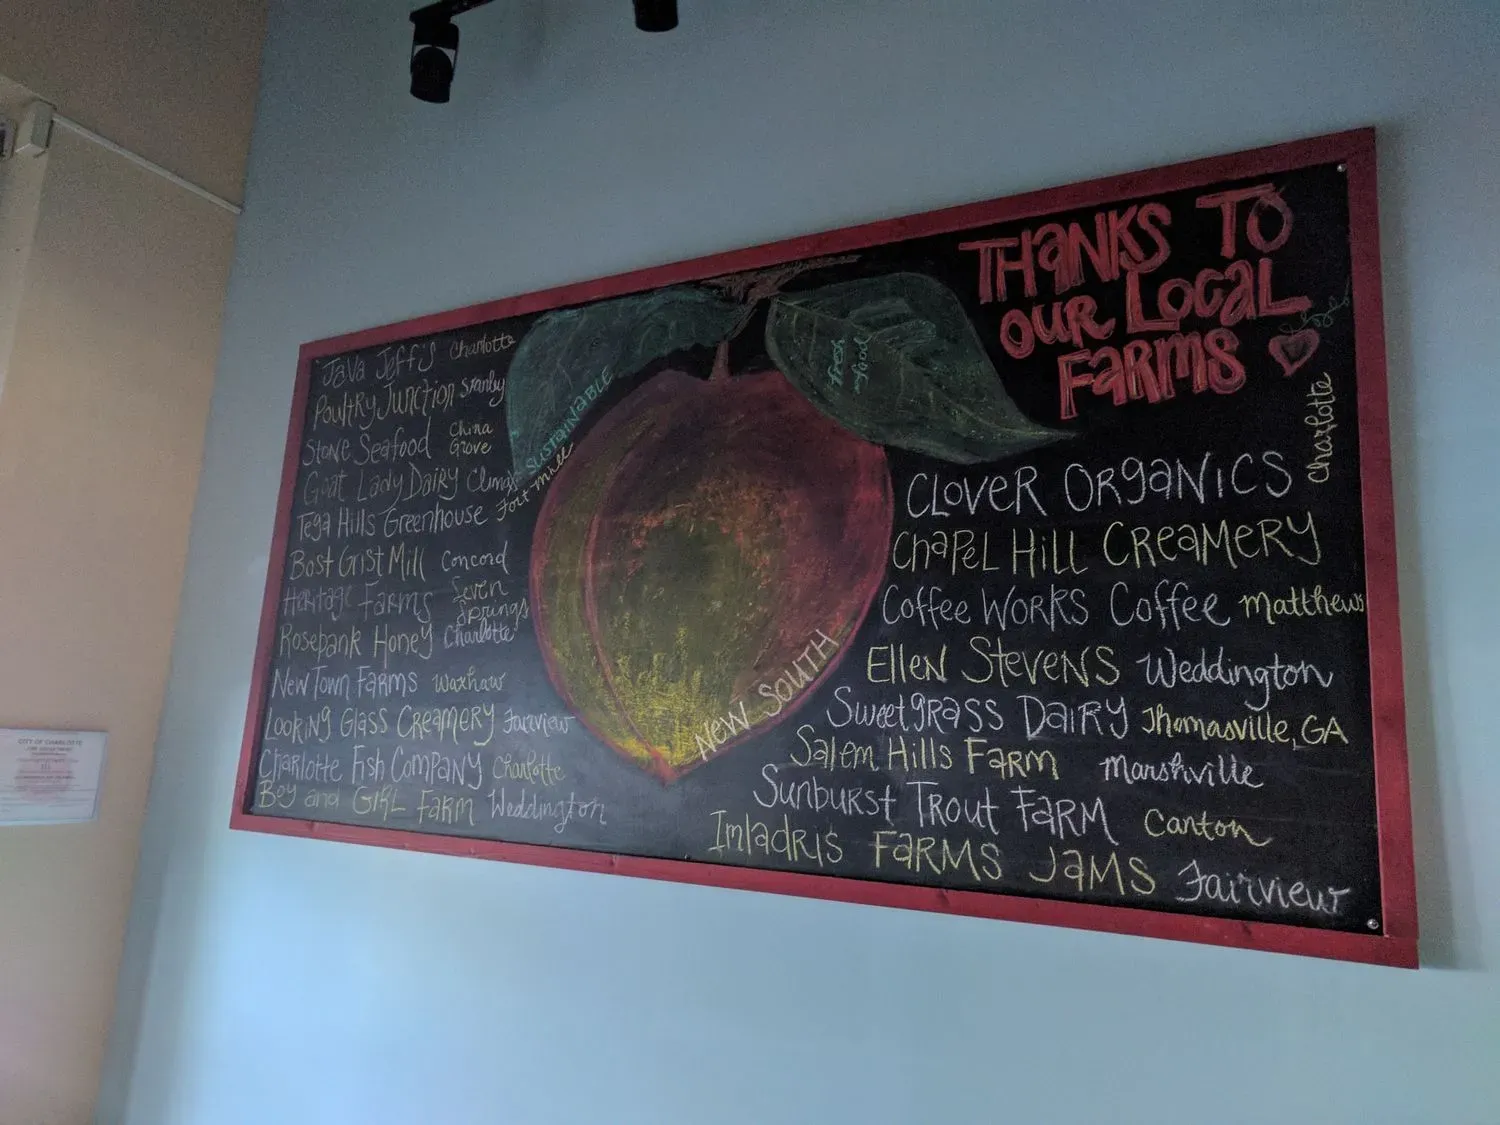 THANKS TO
OUR LOCAL
FARMS
Java Jeff's Charlotte
Poultry Junction Stanly
Stone Seafood China Grove
Goat Lady Dairy Climax
Tega Hills Greenhouse Fort Mill
Bost Grist Mill Concord
Heritage Farms Seven Springs
Rosebank Honey Charlotte
New Town Farms Waxhaw
Looking Glass Creamery Fairview
Charlotte Fish Company Charlotte
Boy and Girl Farm Weddington
SUSTAINABLE
fresh
food
NEW SOUTH
CLOVER ORGANICS Charlotte
Chapel Hill Creamery
Coffee Works Coffee Matthews
Ellen Stevens Weddington
Sweetgrass Dairy Thomasville, GA
Salem Hills Farm Marshville
Sunburst Trout Farm Canton
Imladris Farms Jams Fairview
CITY OF CHARLOTTE